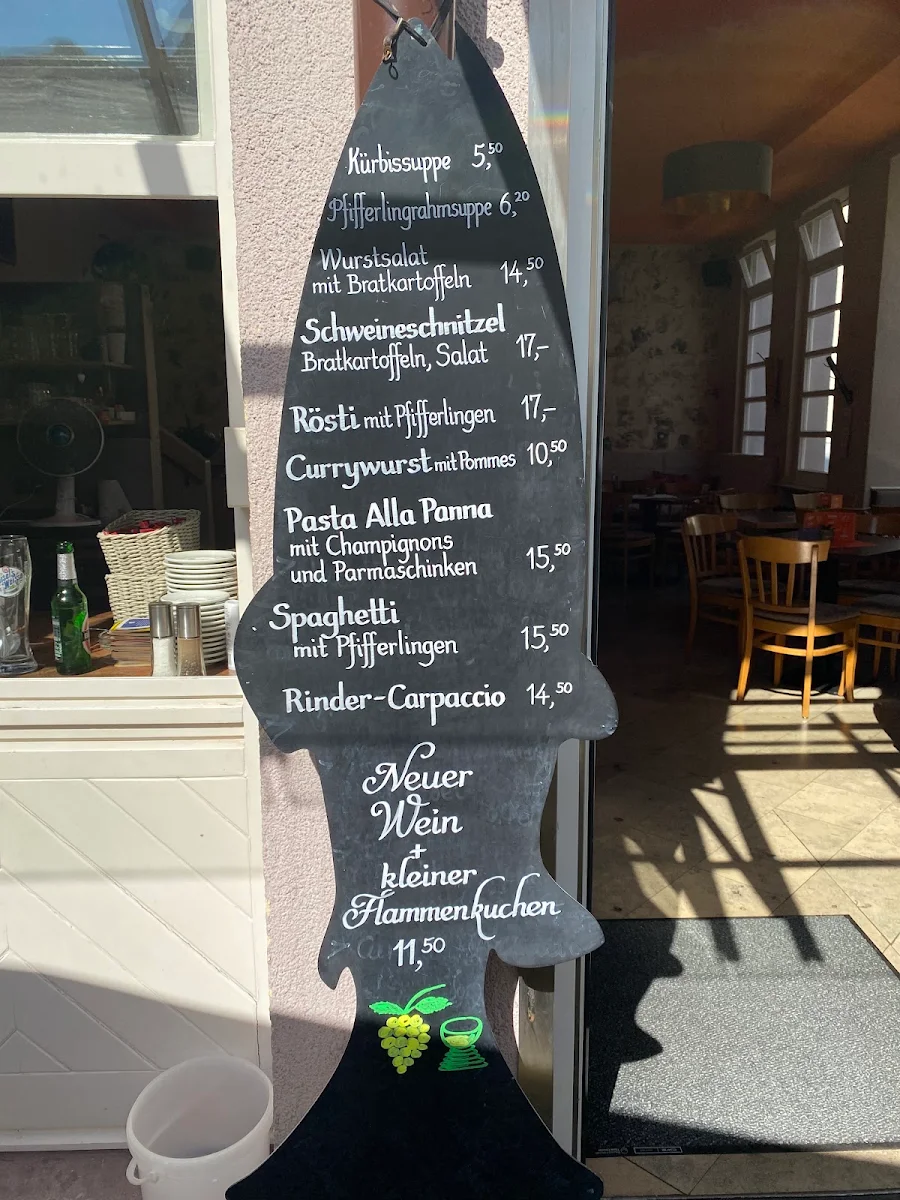 Kürbissuppe 5,50
Pfifferlingrahmsuppe 6,20
Wurstsalat
mit Bratkartoffeln 14,50
Schweineschnitzel
Bratkartoffeln, Salat 17,-
Rösti mit Pfifferlingen 17,-
Currywurst mit Pommes 10,50
Pasta Alla Panna
mit Champignons
und Parmaschinken 15,50
Spaghetti
mit Pfifferlingen 15,50
Rinder-Carpaccio 14,50
Neuer
Wein
+
kleiner
Flammenkuchen
11,50